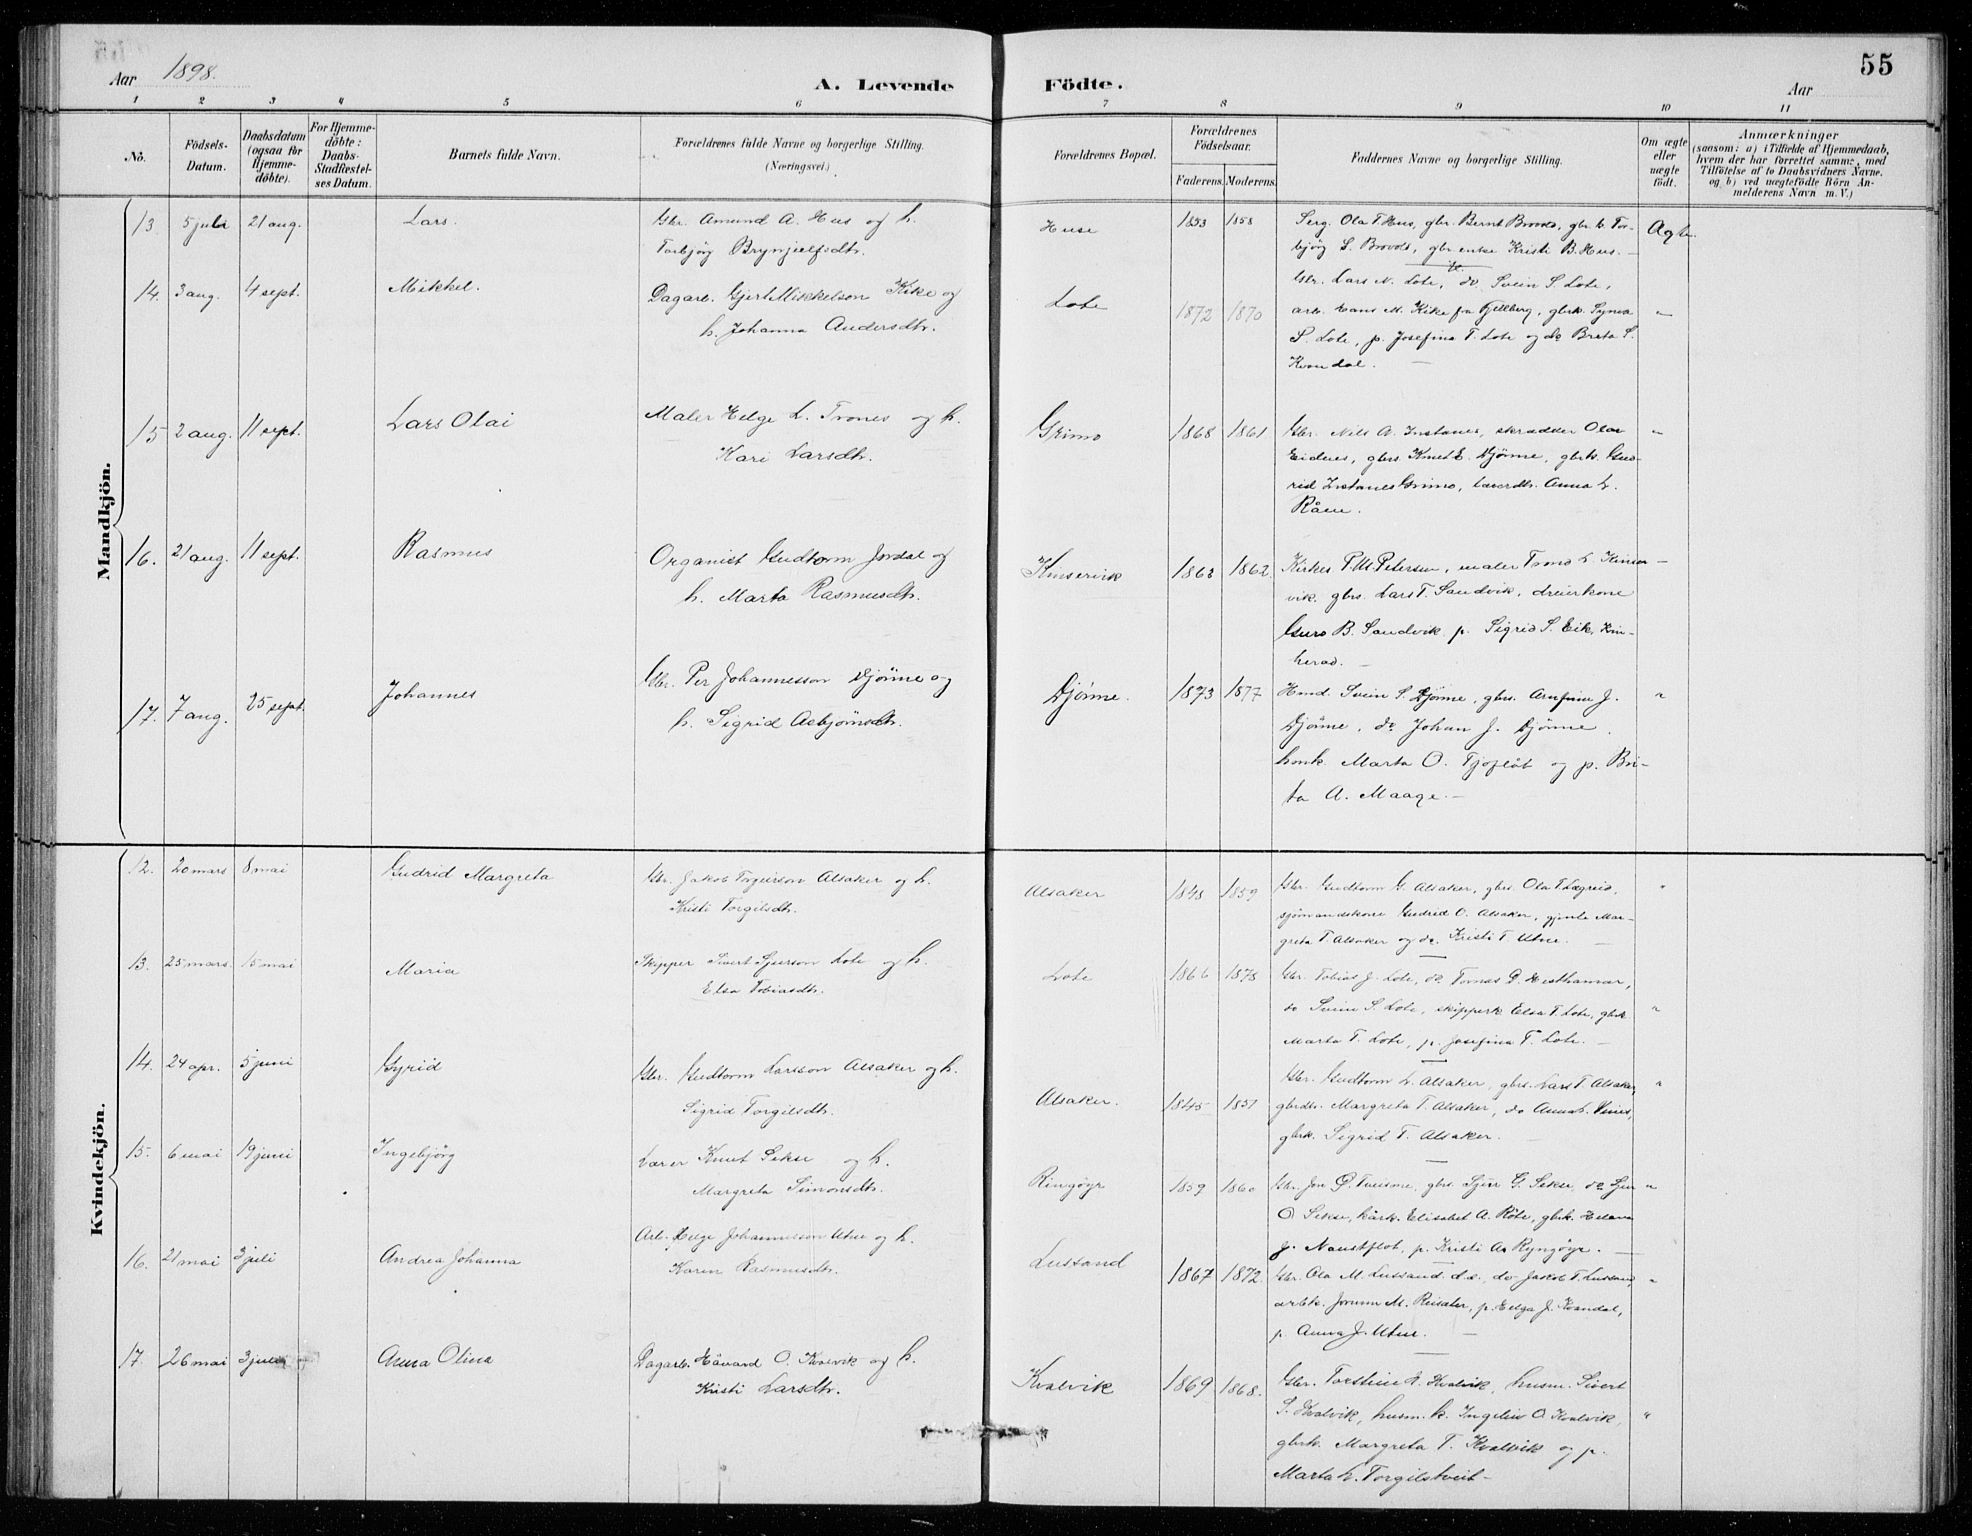 Aar 1898.
A. Levende Födte.
55
Aar
1 2 3 4 5 6 7 8 9 10 11
No.
Födsels-Datum.
Daabsdatum (ogsaa for Hjemme-döbte).
For Hjemme-döbte: Daabs-Stadfæstel-ses Datum.
Barnets fulde Navn.
Forældrenes fulde Navne og borgerlige Stilling. (Næringsvei.)
Forældrenes Bopæl.
Forældrenes Födselsaar.
Faderens. Moderens.
Faddernes Navne og borgerlige Stilling.
Om ægte eller uægte födt.
Anmærkninger
(saasom: a) i Tilfælde af Hjemmedaab, hvem der har forrettet samme, med Tilföielse af to Daabsvidners Navne. og b) ved uægtefödte Börn An-melderens Navn m. V.)
Mandkjön.
13. 5 juli 21 aug. Lars. Gbr. Amund A. Hus og h.
Torbjörg Brynjelfsdtr.
Huse 1853 1858
Serg. Ola T Hus, gbr. Bernt Bravold, gbr.k. Tor-
björg S. Bravold, gbr. enke Kristi B. Hus. —
Ægte.
14. 3 aug. 4 sept. Mikkel. Dagarb. Gjert Mikkelson Kike og
h. Johanna Andersdtr.
Lote 1872 1870
Gbr. Lars N. Lote, do Svein S. Lote,
arb. Hans M. Kike fra Fjellberg, gbrk. Synva
S. Lote, p. Josefina T. Lote og do Breta S.
Kvandal. —
"
15 2 aug. 11 sept. Lars Olai Maler Helge L. Trones og h.
Kari Larsdtr.
Grimo 1868 1861
Gbr. Nils A. Instanes, skrædder Olav
Eidnes, gbrs. Knut E. Djönne, gbrk. Gud-
rid Instanes Grimo, lærerdtr. Anna L.
Råen.
"
16. 21 aug. 11 sept. Rasmus Organist Gudtorm Jordal og
h. Marta Rasmusdtr.
Kinservik 1863 1862
Kirkes. P. M. Petersen, maler Trond L. Kinser-
vik. gbrs. Lars T. Sandvik, dreierkone
Guro B. Sandvik p. Sigrid S. Eik, Kin-
herad. —
17. 7 aug. 25 sept. Johannes Gbr. Per Johannesson Djönne og
h. Sigrid Asbjörnsdtr.
Djönne. 1873 1877
Hmd. Svein S. Djönne, gbrs. Arnfinn J.
Djönne, do Johan J. Djönne.
honk. Marta O. Tjoflöt og p. Bri-
ta A. Maage. —
"
Kvindekjön.
12. 20 mars 8 mai Gudrid Margreta Gbr. Jakob Torgeirson Alsaker og h.
Kristi Torgilsdtr.
Alsaker 1848 1859
Gbr. Gudtorm G. Alsaker, gbrs. Ola T Lægreid,
sjömandskone Gudrid O. Alsaker, gjente Mar-
greta T. Alsaker og do. Kristi T. Utne. —
"
13. 25 mars 15 mai Maria Skipper Sivert Sjurson Lote og h.
Elsa Tobiasdtr.
Lote 1866 1878
Gbr. Tobias J. Lote, do Tomas D. Hesthamar,
do Svein S. Lote, skipperk. Elsa T. Lote, gbrk
Marta T. Lote, p. Josefina T. Lote. —
"
14. 24 apr. 5 juni Gyrid Gbr. Gudtorm Larsson Alsaker og h.
Sigrid Torgilsdtr.
Alsaker. 1845 1851
Gbr. Gudtorm L. Alsaker, gbrs. Lars T. Alsaker,
gbrdtr. Margreta T. Alsaker, do Anna L. Vines,
gbrk. Sigrid T. Alsaker. —
"
15. 6 mai 19 juni Ingebjörg Lærer Knut Sekse og h.
Margreta Simonsdtr.
Ringöyr 1859 1860
Gbr. Jon Ö. Tveisme, gbrs. Sjur G. Sekse, do Sjur
O. Sekse, kårk. Elisabet A. Röte, gbrk. Helena
J. Naustflot, p. Kristi As Ryngöyr. —
"
16. 21 mai 3 juli Andrea Johanna Arb. Helge Johannesson Utne og h.
Karen Rasmusdtr.
Lussand 1867 1872.
Gbr. Ola M. Lussand. d.e., do Jakob T. Lussand
arbk. Jorunn M. Reisæter, p. Helga J. Kvandal,
p. Anna J. Utne. —
"
17. 26 mai 3 juli Anna Olina Dagarb. Håvard O. Kvalvik og h.
Kristi Larsdtr.
Kvalvik 1869 1868.
Gbr. Torstein L. Kvalvik, husm. Sivert
S. Kvalvik, husm. k. Ingeliv O. Kvalvik,
gbrk. Margreta T. Kvalvik og p.
Marta L. Torgilstveit —
"